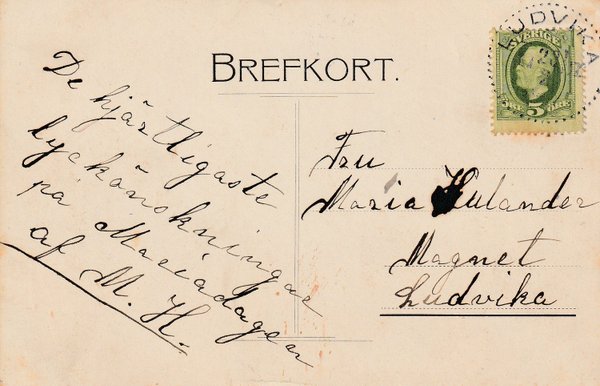 BREFKORT.
De hjärtligaste
lyckönskningar
på Mariadagen
af M. H.
Fru
Maria Hulander
Magnet
Ludvika
LUDVIKA
SVERIGE
5